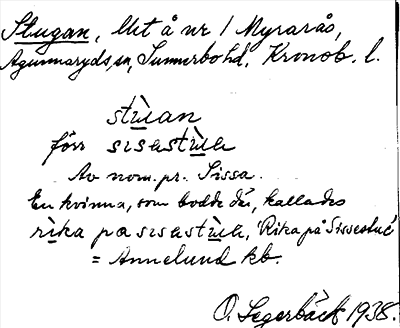 Stugan, lht å nr 1 Myrarås,
Agunnaryds sn, Sunnerbo hd. Kronob. l.
stùan
förr sɩsastùa
Av nom. pr. Sissa.
En kvinna, som bodde där, kallades
rìka pa sɩsastùa, 'Rika på Sissestua'
= Annelund kb.
O. Segerbäck 1938.